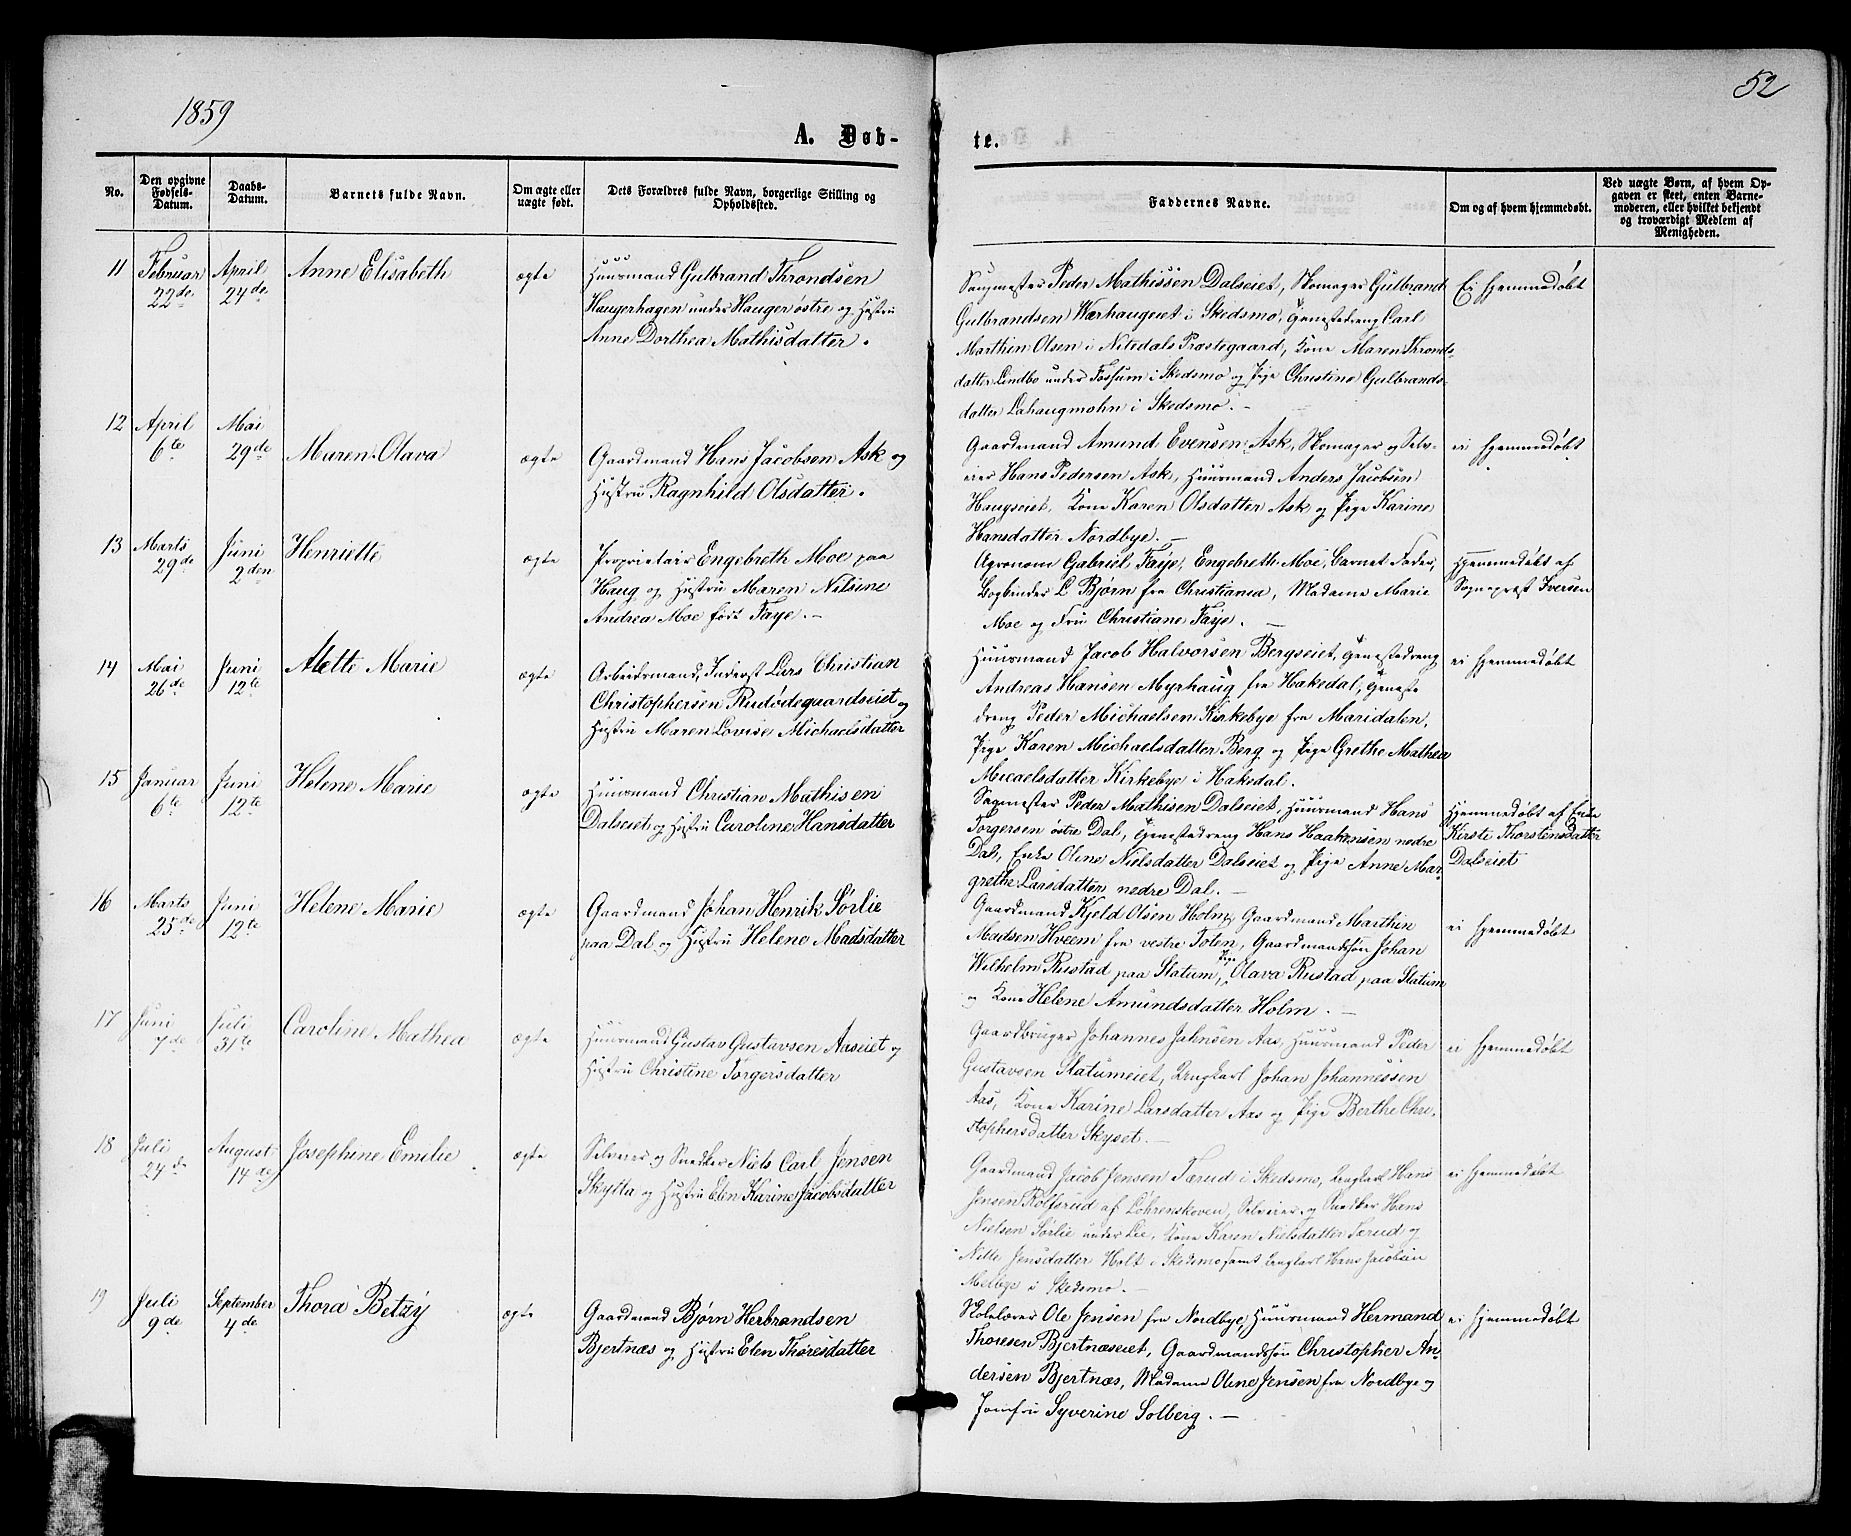 1859
52
A. Døb-
te.
No.
Den opgivne
Fødsels-
Datum.
Daabs-
Datum.
Barnets fulde Navn.
Om ægte eller
uægte født.
Dets Forældres fulde Navn, borgerlige Stilling og
Opholdssted.
Faddernes Navne.
Om og af hvem hjemmedøbt.
Ved uægte Børn, af hvem Op-
gaven er skeet, enten Barne-
moderen, eller hvilket bekjendt
og troværdigt Medlem af
Menigheden.
11
Februar
22de
April
24de
Anne Elisabeth
ægte
Huusmand Gulbrand Throndsen
Haugerhagen under Hauger østre og Hustru
Anne Dorthea Mathisdatter.
Saugmester Peder Mathissen Dalseiet, Skomager Gulbrand
Gulbrandsen Wærhaugeiet i Skedsmo, Tjenestedreng Carl
Marthin Olsen i Nitedals Præstegaard, Kone Maren Thronds-
datter Lindbo under Fossum i Skedsmo og Pige Christine Gulbrands-
datter Lahaugmohn i Skedsmo. -
Ei hjemmedøbt
12
April
6te
Mai
29de
Maren Olava
ægte
Gaardmand Hans Jacobsen Ask og
Hustru Ragnhild Olsdatter.
Gaardmand Amund Evensen Ask, Skomager og Selv-
eier Hans Pedersen Ask, Huusmand Anders Jacobsen
Haugseiet, Kone Karen Olsdatter Ask og Pige Karine
Hansdatter Nordbye. -
ei hjemmedøbt
13
Marts
29de
Juni
2den
Henriette
ægte
Proprietair Engebreth Moe paa
Haug og Hustru Maren Nilsine
Andrea Moe født Faye. -
Agronom Gabriel Faye, Engebreth Moe, Barnet Fader,
Bogbinder L Bjørn fra Christiania, Madame Marie
Moe og Fru Christiane Faye. -
Hjemmedøbt af
Sognepræst Iversen
14
Mai
26de
Juni
12te
Alette Marie
ægte
Arbeidsmand, Inderst Lars Christian
Christophersen Rudødegaardseiet og
Hustru Maren Lovise Michaelsdatter
Huusmand Jacob Halvorsen Bergseiet, Tjenestedreng
Andreas Hansen Myrhaug fra Hakedal, Tjeneste
dreng Peder Michaelsen Kirkebye fra Maridalen,
Pige Karen Michaelsdatter Berg og Pige Grethe Mathea
Micaelsdatter Kirkebye i Hakedal.
ei hjemmedøbt
15
Januar
6te
Juni
12te
Helene Marie
ægte
Huusmand Christian Mathisen
Dalseiet og Hustru Caroline Hansdatter
Sagmester Peder Mathisen Dalseiet, Huusmand Hans
Torgersen østre Dal, Tjenestedreng Hans Haakensen nedre
Dal, Enke Olene Nielsdatter Dalseiet og Pige Anne Mar-
grethe Larsdatter nedre Dal. -
Hjemmedøbt af Enke
Kirsti Thorstensdatter
Dalseiet
16
Marts
25de
Juni
12te
Helene Marie
ægte
Gaardmand Johan Henrik Sørlie
paa Dal og Hustru Helene Madsdatter
Gaardmand Kjeld Olsen Holm, Gaardmand Marthin
Madsen Hveem fra vestre Toten, Gaardmandssøn Johan
Wilhelm Rustad paa Slatum, Pige Olava Rustad paa Slatum
og Kone Helene Amundsdatter Holm. -
ei hjemmedøbt
17
Juni
7de
Juli
31te
Caroline Mathea
ægte
Huusmand Gustav Gustavsen Aaseiet og
Hustru Christine Torgersdatter
Gaardbruger Johannes Jahnsen Aas, Huusmand Peder
Gustavsen Slatumeiet, Ungkarl Johan Johannessen
Aas, Kone Karine Larsdatter Aas og Pige Berthe Chri-
stophersdatter Skyset. -
ei hjemmedøbt
18
Juli
24de
August
14de
Josephine Emilie
ægte
Selveier og Snedker Niels Carl Jensen
Skytta og Hustru Elen Karine Jacobsdatter
Gaardmand Jacob Jensen Tærud i Skedsmo, Ungkarl Hans
Jensen Rolfsrud af Løhrenskoven, Selveier og Snedker Hans
Nielsen Sørlie under Lie, Kone Karen Nielsdatter Tærud og
Nille Jensdatter Holt i Skedsmo samt Ungkarl Hans Jacobsen
Melbye i Skedsmo. -
ei hjemmedøbt
19
Juli
9de
September
4de
Thora Betzy
ægte
Gaardmand Bjørn Herbrandsen
Bjertnæs og Hustru Elen Thoresdatter
Skolelærer Ole Jensen fra Nordbye, Huusmand Hermand
Thoresen Bjertnæseiet, Gaardmandssøn Christopher An-
dersen Bjertnæs, Madame Oline Jensen fra Nordbye og
Jomfru Syverine Solberg. -
ei hjemmedøbt